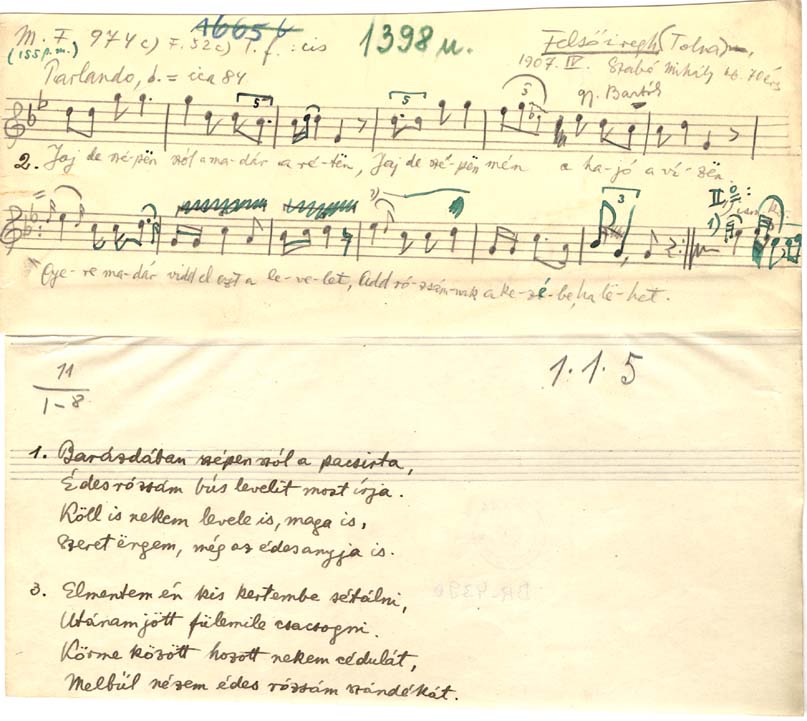 16656
M. F. 974 c) F. 52 c) T. f. : cis
1398 u.
Felsőiregh (Tolna),
(155 p.m.)
1907. IV. Szabó Mihály kb. 70 éves
Parlando, = cca 84
gy. Bartók
5 5 5
2. Jaj de szé-pën szól a ma-dár a ré-tën, Jaj de szé-pën mén a ha-jó a ví-zën.
3 II. 1)
Gye-re ma-dár vidd el ezt a le-ve-let, Add ró-zsám-nak a ke-zé-be, ha lë-het.
11
1-8
1.1.5
1. Barázdában szépen szól a pacsirta,
Édes rózsám bús levelit most írja.
Köll is nekem levele is, maga is,
Szeret ërgem, még az édesanyja is.
3. Elmentem én kis kertembe sétálni,
Utánam jött fülemile csacsogni.
Körme között hozott nekem cédulát,
Melbül nézem édes rózsám szándékát.